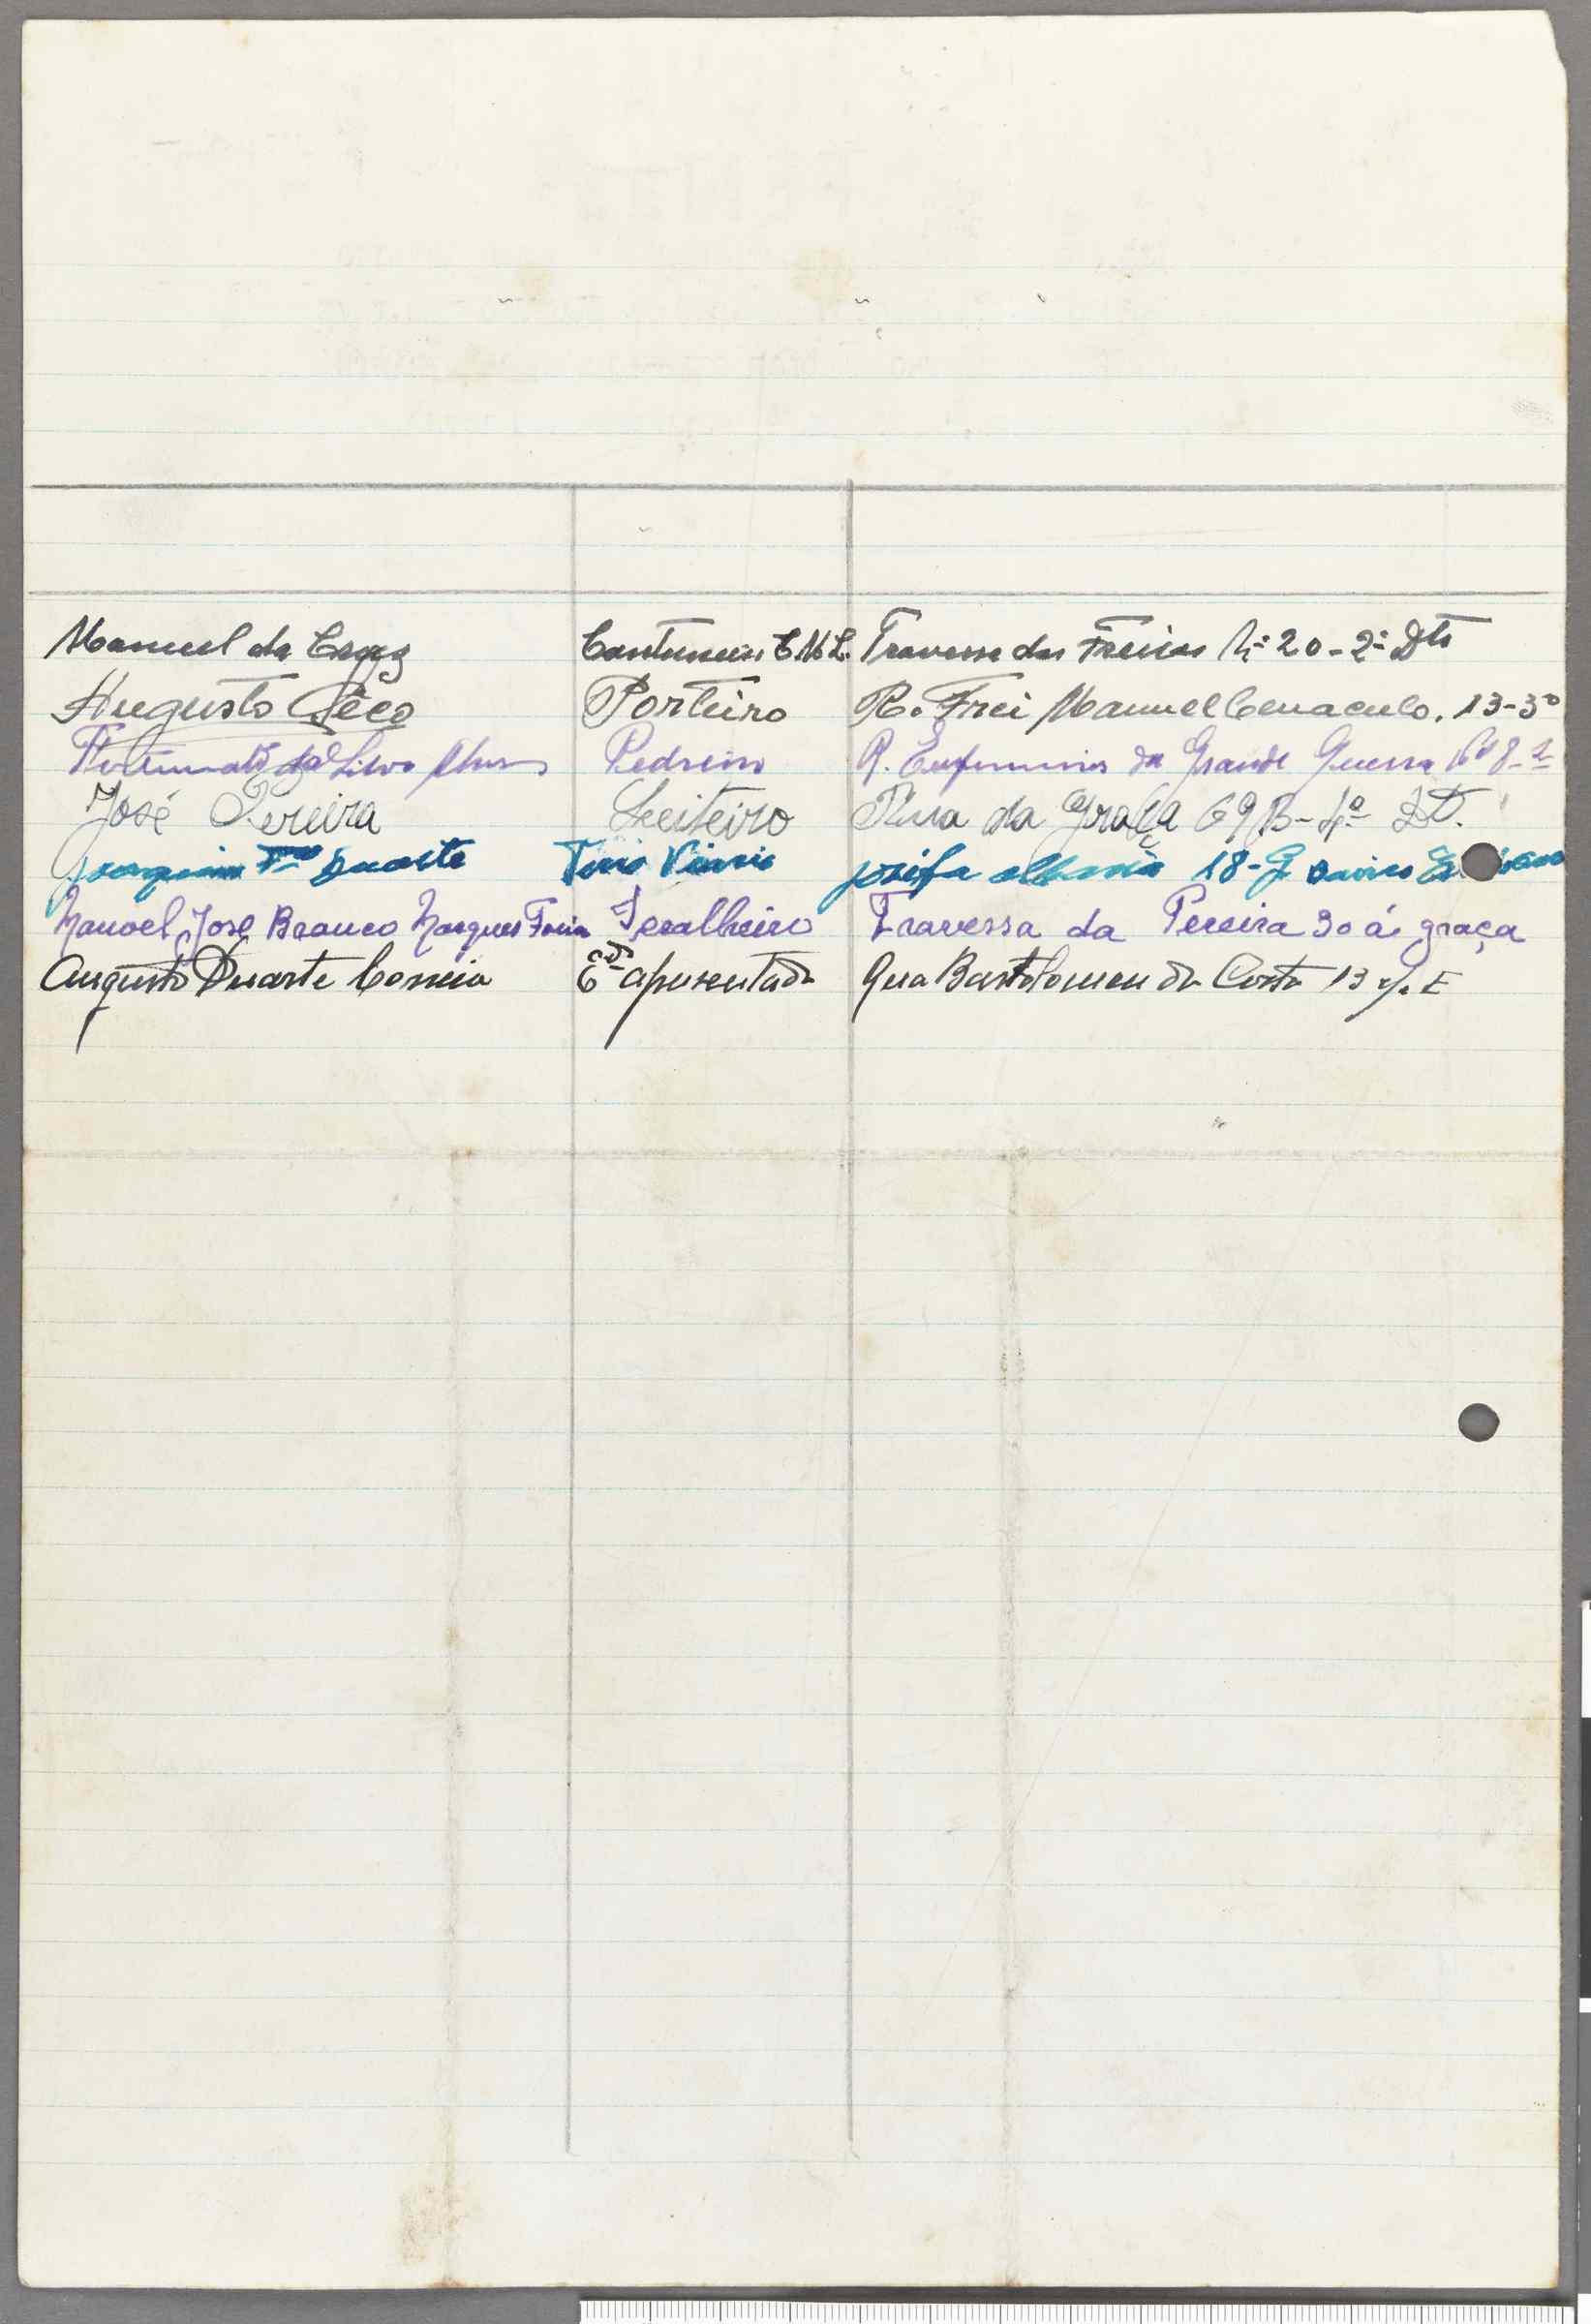 Manuel da Cruz Cantoneiro C.M.L. Travessa das Freiras Nº 20-2º Dto
Augusto Pêco Porteiro R. Frei Manuel Cenaculo, 13-3º
Fortunato da Silva Pedreiro R. Enfermeiras da Grande Guerra
José Pereira Leiteiro Rua da Graça 69B-4º Dt.
Joaquim Duarte Josefa 18-
Manoel José Branco Marques Faria Seralheiro Travessa da Pereira 30 á graça
Augusto Duarte Correia aposentado Rua Bartolomeu da Costa 13